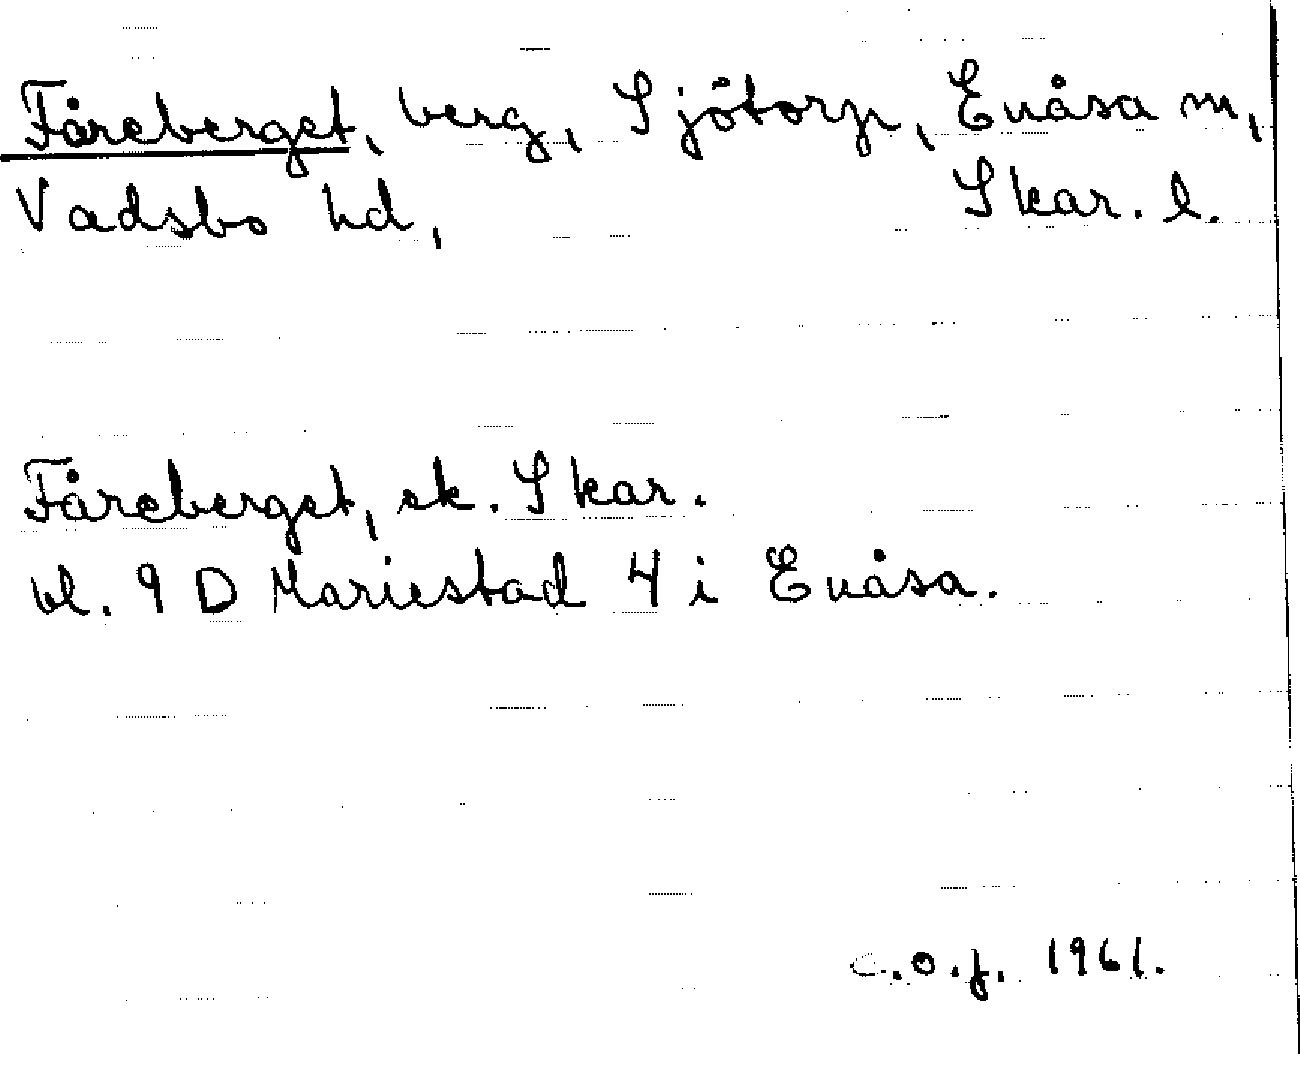 Fåreberget, berg, Sjötorp, Enåsa sn,
Vadsbo hd, Skar. l.
Fåreberget, ek. Skar.
bl. 9 D Mariestad 4 i Enåsa.
C.O.J. 1961.